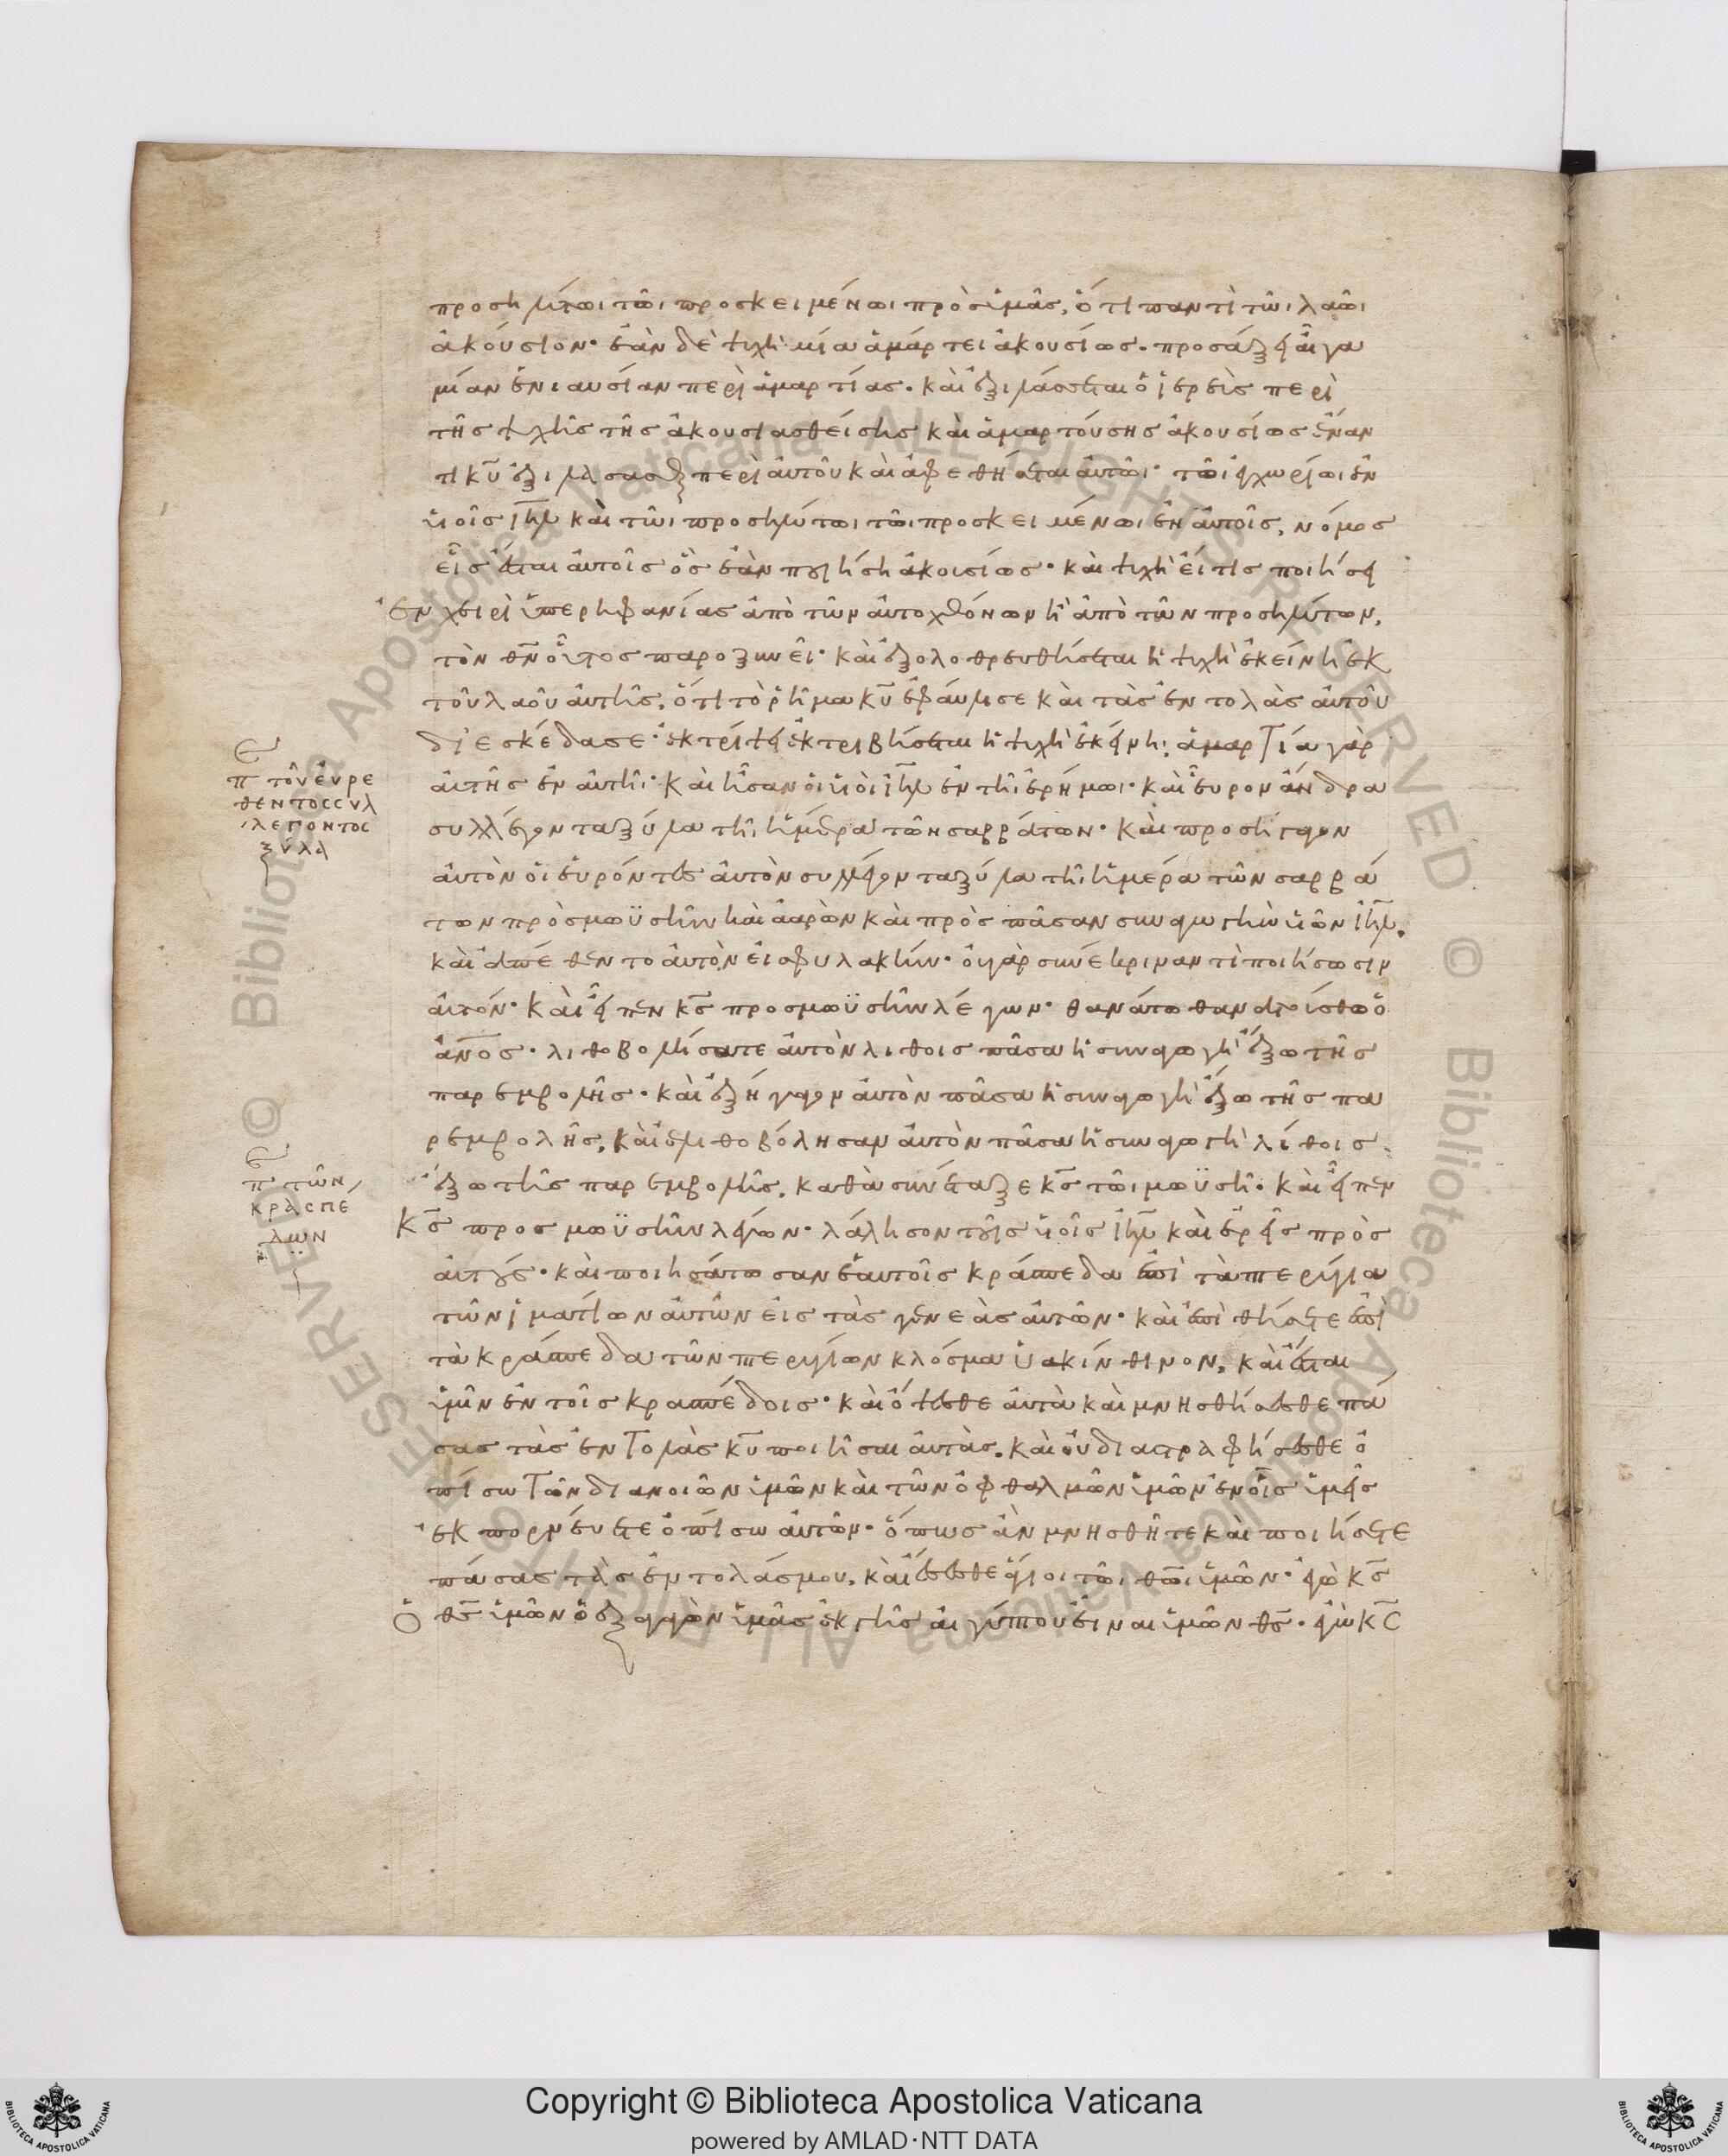 προσηλύτωι τῶι προσκειμένωι πρὸς ὑμᾶς, ὅτι παντὶ τῶι λαῶι
ἀκούσιον· ἐὰν δὲ ψυχὴ μία ἁμάρτει ἀκουσίως· προσάξει αἶγα
μίαν ἐνιαυσίαν περὶ ἁμαρτίας· καὶ ἐξιλάσεται ὁ ἱερεὺς περὶ
τῆς ψυχῆς τῆς ἀκουσιασθείσης καὶ ἁμαρτούσης ἀκουσίως ἔναν
τι κ̅υ̅ ἐξιλάσασθαι περὶ αὐτοῦ καὶ ἀφεθήσεται αὐτῶι· τῶι ἐγχωρίωι ἐν
υἱοῖς ι̅η̅λ̅ καὶ τῶι προσηλύτωι τῶι προσκειμένωι ἐν αὐτοῖς, νόμος
εἷς ἔσται αὐτοῖς ὃς ἐὰν ποιήση ἀκουσίως· καὶ ψυχὴ εἴ τις ποιήσει
ἐν χειρὶ ὑπερηφανίας ἀπὸ τῶν αὐτοχθόνων ἢ ἀπὸ τῶν προσηλύτων,
τὸν θ̅ν̅ οὗτος παροξυνεῖ· καὶ ἐξολοθρευθήσεται ἡ ψυχὴ ἐκείνη ἐκ
τοῦ λαοῦ αὐτῆς, ὅτι τὸ ῥῆμα κ̅υ̅ ἐφαύλισε καὶ τὰς ἐντολὰς αὐτοῦ
διεσκέδασε· ἐκτρίψει ἐκτριβήσεται ἡ ψυχὴ ἐκείνη· ἁμαρτία γὰρ
αὐτῆς ἐν αὐτῆι· καὶ ἦσαν οἱ υἱοὶ ι̅η̅λ̅ ἐν τῆι ἐρήμωι· καὶ εὗρον ἄνδρα
συλλέγοντα ξύλα τῆι ἡμέρα τῶν σαββάτων· καὶ προσήγαγον
αὐτὸν οἱ εὑρόντες αὐτὸν συλλέγοντα ξύλα τῆι ἡμέρα τῶν σαββά
των πρὸς μωϋσῆν καὶ ἀαρὼν καὶ πρὸς πᾶσαν συναγωγὴν υἱῶν ι̅η̅λ̅.
καὶ ἀπέθεντο αὐτὸν εἰς φυλακήν· οὐ γὰρ συνέκριναν τί ποιήσωσιν
αὐτόν· καὶ εἶπεν κ̅ς̅ προς μωϋσῆν λέγων· θανάτω θανατούσθω ὁ
α̅ν̅ο̅ς̅· λιθοβολήσατε αὐτὸν λίθοις πᾶσα ἡ συναγωγὴ ἔξω τῆς
παρεμβολῆς· καὶ ἐξήγαγον αὐτὸν πᾶσα ἡ συναγωγὴ ἔξω τῆς πα
ρεμβολῆς, καὶ ἐλιθοβόλησαν αὐτὸν πᾶσα ἡ συναγωγὴ λίθοις
ἔξω τῆς παρεμβολῆς, καθὰ συνέταξε κ̅ς̅ τῶι μωϋσῆ· καὶ εἶπεν
κ̅ς̅ προς μωϋσῆν λέγων· λάλησον τοῖς υἱοῖς ι̅η̅λ̅ καὶ ἐρεῖς πρὸς
αὐτούς· καὶ ποιησάτωσαν ἑαυτοῖς κράσπεδα ἐπὶ τὰ πτερύγια
τῶν ἱματίων αὐτῶν εἰς τὰς γενεὰς αὐτῶν· καὶ ἐπιθήσετε ἐπὶ
τὰ κράσπεδα τῶν πτερυγίων κλόσμα ὑακίνθινον, καὶ ἔσται
ὑμῖν ἐν τοῖς κρασπέδοις· καὶ ὄψεσθε αὐτὰ καὶ μνησθήσεσθε πα
σας τὰς ἐντολὰς κ̅υ̅ ποιῆσαι αὐτάς, καὶ οὐ διαστραφήσεσθε ὀ
πίσω τῶν διανοιῶν ὑμῶν καὶ τῶν ὀφθαλμῶν ὑμῶν ἐν οἷς ὑμεῖς
ἐκπορνεύετε ὀπίσω αὐτῶν· ὅπως ἂν μνησθῆτε καὶ ποιήσετε
πάσας τὰς ἐντολάς μου, καὶ ἔσεσθε ἅγιοι τῶι θ̅ω̅ι ὑμῶν· ἐγὼ κ̅ς̅
ὁ θ̅ς̅ ὑμῶν ὁ ἐξαγαγὼν ὑμᾶς ἐκ γῆς αἰγύπτου εἶναι ὑμῶν θ̅ς̅· ἐγὼ κ̅ς̅
π τοῦ εὑρε
θεντος συλ
λεγοντος
ξύλα
π τῶν
κρασπέ
δων
Copyright © Biblioteca Apostolica Vaticana
powered by AMLAD·NTT DATA
© Biblioteca Apostolica Vaticana ALL RIGHTS RESERVED
© Biblioteca Apostolica Vaticana ALL RIGHTS RESERVED
BIBLIOTECA APOSTOLICA VATICANA
BIBLIOTECA APOSTOLICA VATICANA